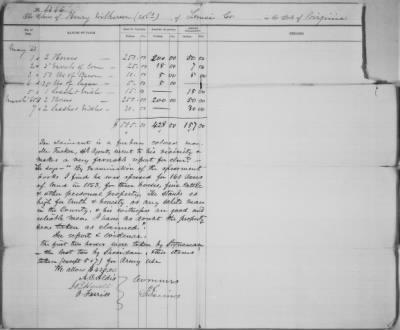 No. 6666
The claim of Henry Wilkerson (col'd) of Louisa Co. in the State of Virginia
NATURE OF CLAIM
REMARKS
1 2 Horses 250.00 200 00 50 00
2 5 Barrels of Corn 25.00 18 00 7 00
3 50 lbs of Bacon 8 00
4 lbs of Sugar
5 1 Saddle & bridle 15 — 15 00
6 2 Horses 250.00 200 00 50 00
7 2 Saddles & bridles — 30 00
$ 585.00 428.00 157.00
The claimant is a freeborn colored man.
Mr. Tucker, Spl. Agent, went to his vicinity &
makes a very favorable report for claimt.
He says "By examination of the assessment
books I find he was assessed for 165 acres
of land in 1863, for three horses, five cattle
& other personal property. He stands as
high for truth & honesty as any white man
in the County, & his witnesses are good and
reliable men. I have no doubt the property
was taken as claimed."
See report & evidence.
The first two horses were taken by Stoneman
— the last two by Sheridan; other items
taken (except 5 & 7) for Army use
We allow $428.00
A. O. Aldis
J. B. Howell
O. Ferriss
Commrs
of Claims